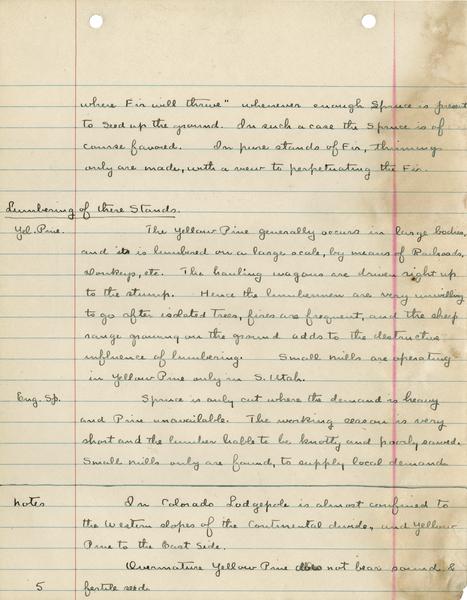 where Fir will thrive" whenever enough Spruce is present
to seed up the ground. In such a case the Spruce is of
course favored. In pure stands of Fir, thinnings
only are made, with a view to perpetuating the Fir.
Lumbering of these Stands.
Yel. Pine. The Yellow Pine generally occurs in large bodies,
and is lumbered on a large scale, by means of Railroads,
donkeys, etc. The hauling wagons are driven right up
to the stump. Hence the lumbermen are very unwilling
to go after isolated trees, fires are frequent, and the sheep
range growing on the ground adds to the destructive
influence of lumbering. Small mills are operating
in Yellow Pine only in S. Utah.
Eng. Sp. Spruce is only cut where the demand is heavy
and Pine unavailable. The working season is very
short and the lumber liable to be knotty and poorly sawed.
Small mills only are found, to supply local demands
Notes In Colorado Lodgepole is almost confined to
the Western slopes of the Continental divide, and Yellow
Pine to the East Side.
Overmature Yellow Pine does not bear sound &
5 fertile seed.